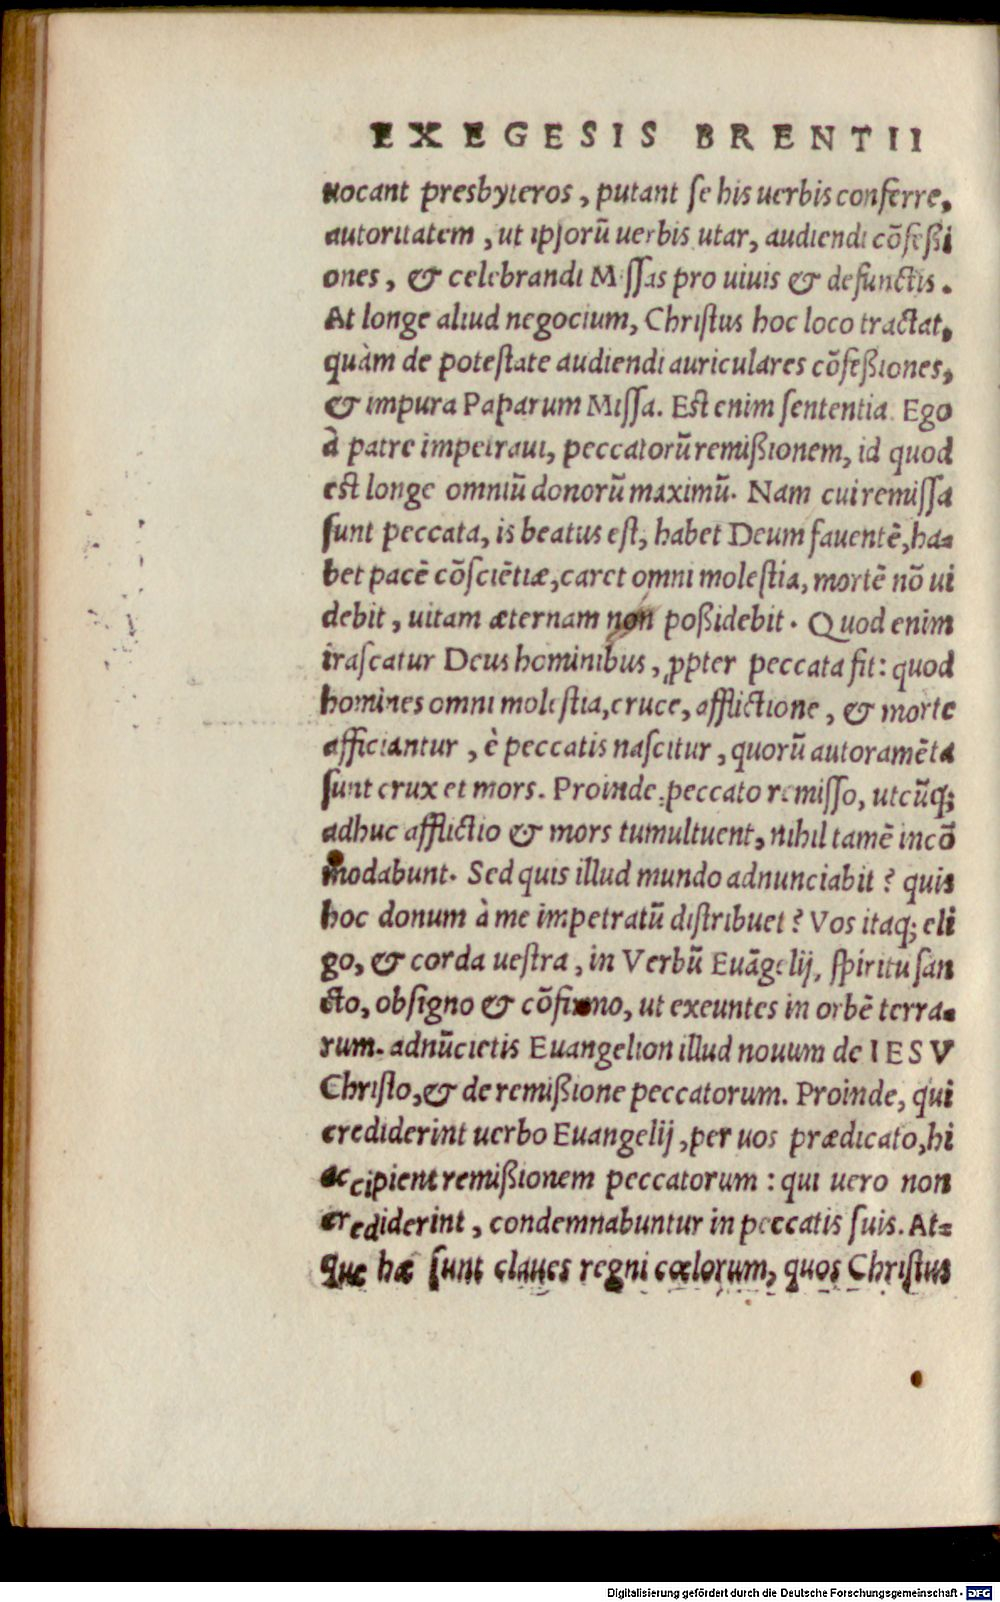 EXEGESIS BRENTII
uocant presbyteros, putant se his uerbis conferre,
autoritatem, ut ipsorũ uerbis utar, audiendi cõfeßi
ones, & celebrandi Missas pro uiuis & defunctis.
At longe aliud negocium, Christus hoc loco tractat,
quàm de potestate audiendi auriculares cõfeßiones,
& impura Paparum Missa. Est enim sententia. Ego
à patre impetraui, peccatorũ remißionem, id quod
est longe omniũ donorũ maximũ. Nam cui remissa
sunt peccata, is beatus est, habet Deum fauentẽ, ha-
bet pacẽ cõsciẽtiæ, caret omni molestia, mortẽ nõ ui
debit, uitam æternam non poßidebit. Quod enim
irascatur Deus hominibus, ꝓpter peccata fit: quod
homines omni molestia, cruce, afflictione, & morte
afficiantur, è peccatis nascitur, quorũ autoramẽta
sunt crux et mors. Proinde peccato remisso, utcũq;
adhuc afflictio & mors tumultuent, nihil tamẽ incõ
modabunt. Sed quis illud mundo adnunciabit? quis
hoc donum à me impetratũ distribuet? Vos itaq; eli
go, & corda uestra, in Verbũ Euãgelij, spiritu san
cto, obsigno & cõfirmo, ut exeuntes in orbẽ terra-
rum. adnũcietis Euangelion illud nouum de IESV
Christo, & de remißione peccatorum. Proinde, qui
crediderint uerbo Euangelij, per uos prædicato, hi
accipient remißionem peccatorum: qui uero non
crediderint, condemnabuntur in peccatis suis. At-
que hæ sunt claues regni cœlorum, quos Christus
Digitalisierung gefördert durch die Deutsche Forschungsgemeinschaft - DFG